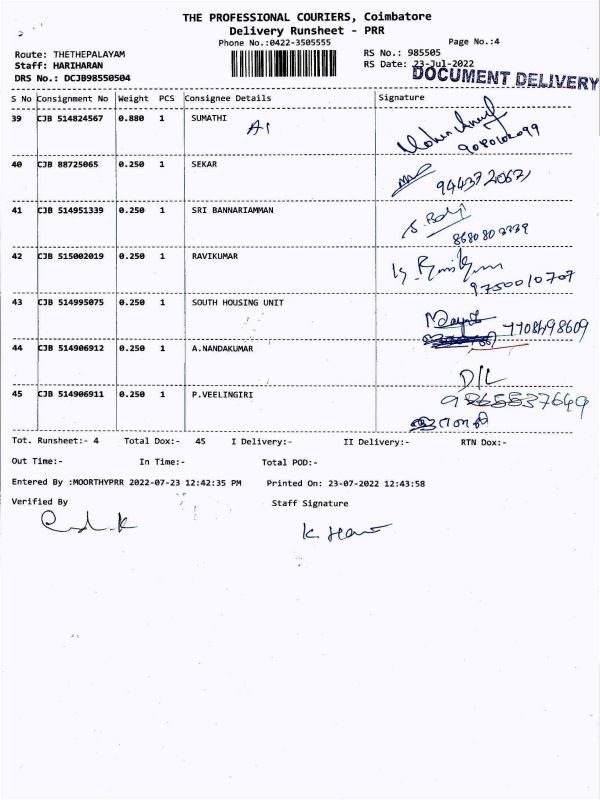 THE PROFESSIONAL COURIERS, Coimbatore
Delivery Runsheet - PRR
Phone No.:0422-3505555
Page No.:4
Route: THETHEPALAYAM
RS No.: 985505
Staff: HARIHARAN
RS Date: 23-Jul-2022
DRS No.: DCJB98550504
DOCUMENT DELIVERY
S No Consignment No Weight PCS Consignee Details Signature
39 CJB 514824567 0.880 1 SUMATHI
A1
40 CJB 88725065 0.250 1 SEKAR
41 CJB 514951339 0.250 1 SRI BANNARIAMMAN
42 CJB 515002019 0.250 1 RAVIKUMAR
9750010707
43 CJB 514995075 0.250 1 SOUTH HOUSING UNIT
44 CJB 514906912 0.250 1 A.NANDAKUMAR
D/L
45 CJB 514906911 0.250 1 P.VEELINGIRI
9865537649
Tot. Runsheet:- 4 Total Dox:- 45 I Delivery:- II Delivery:- RTN Dox:-
Out Time:- In Time:- Total POD:-
Entered By :MOORTHYPRR 2022-07-23 12:42:35 PM Printed On: 23-07-2022 12:43:58
Verified By Staff Signature